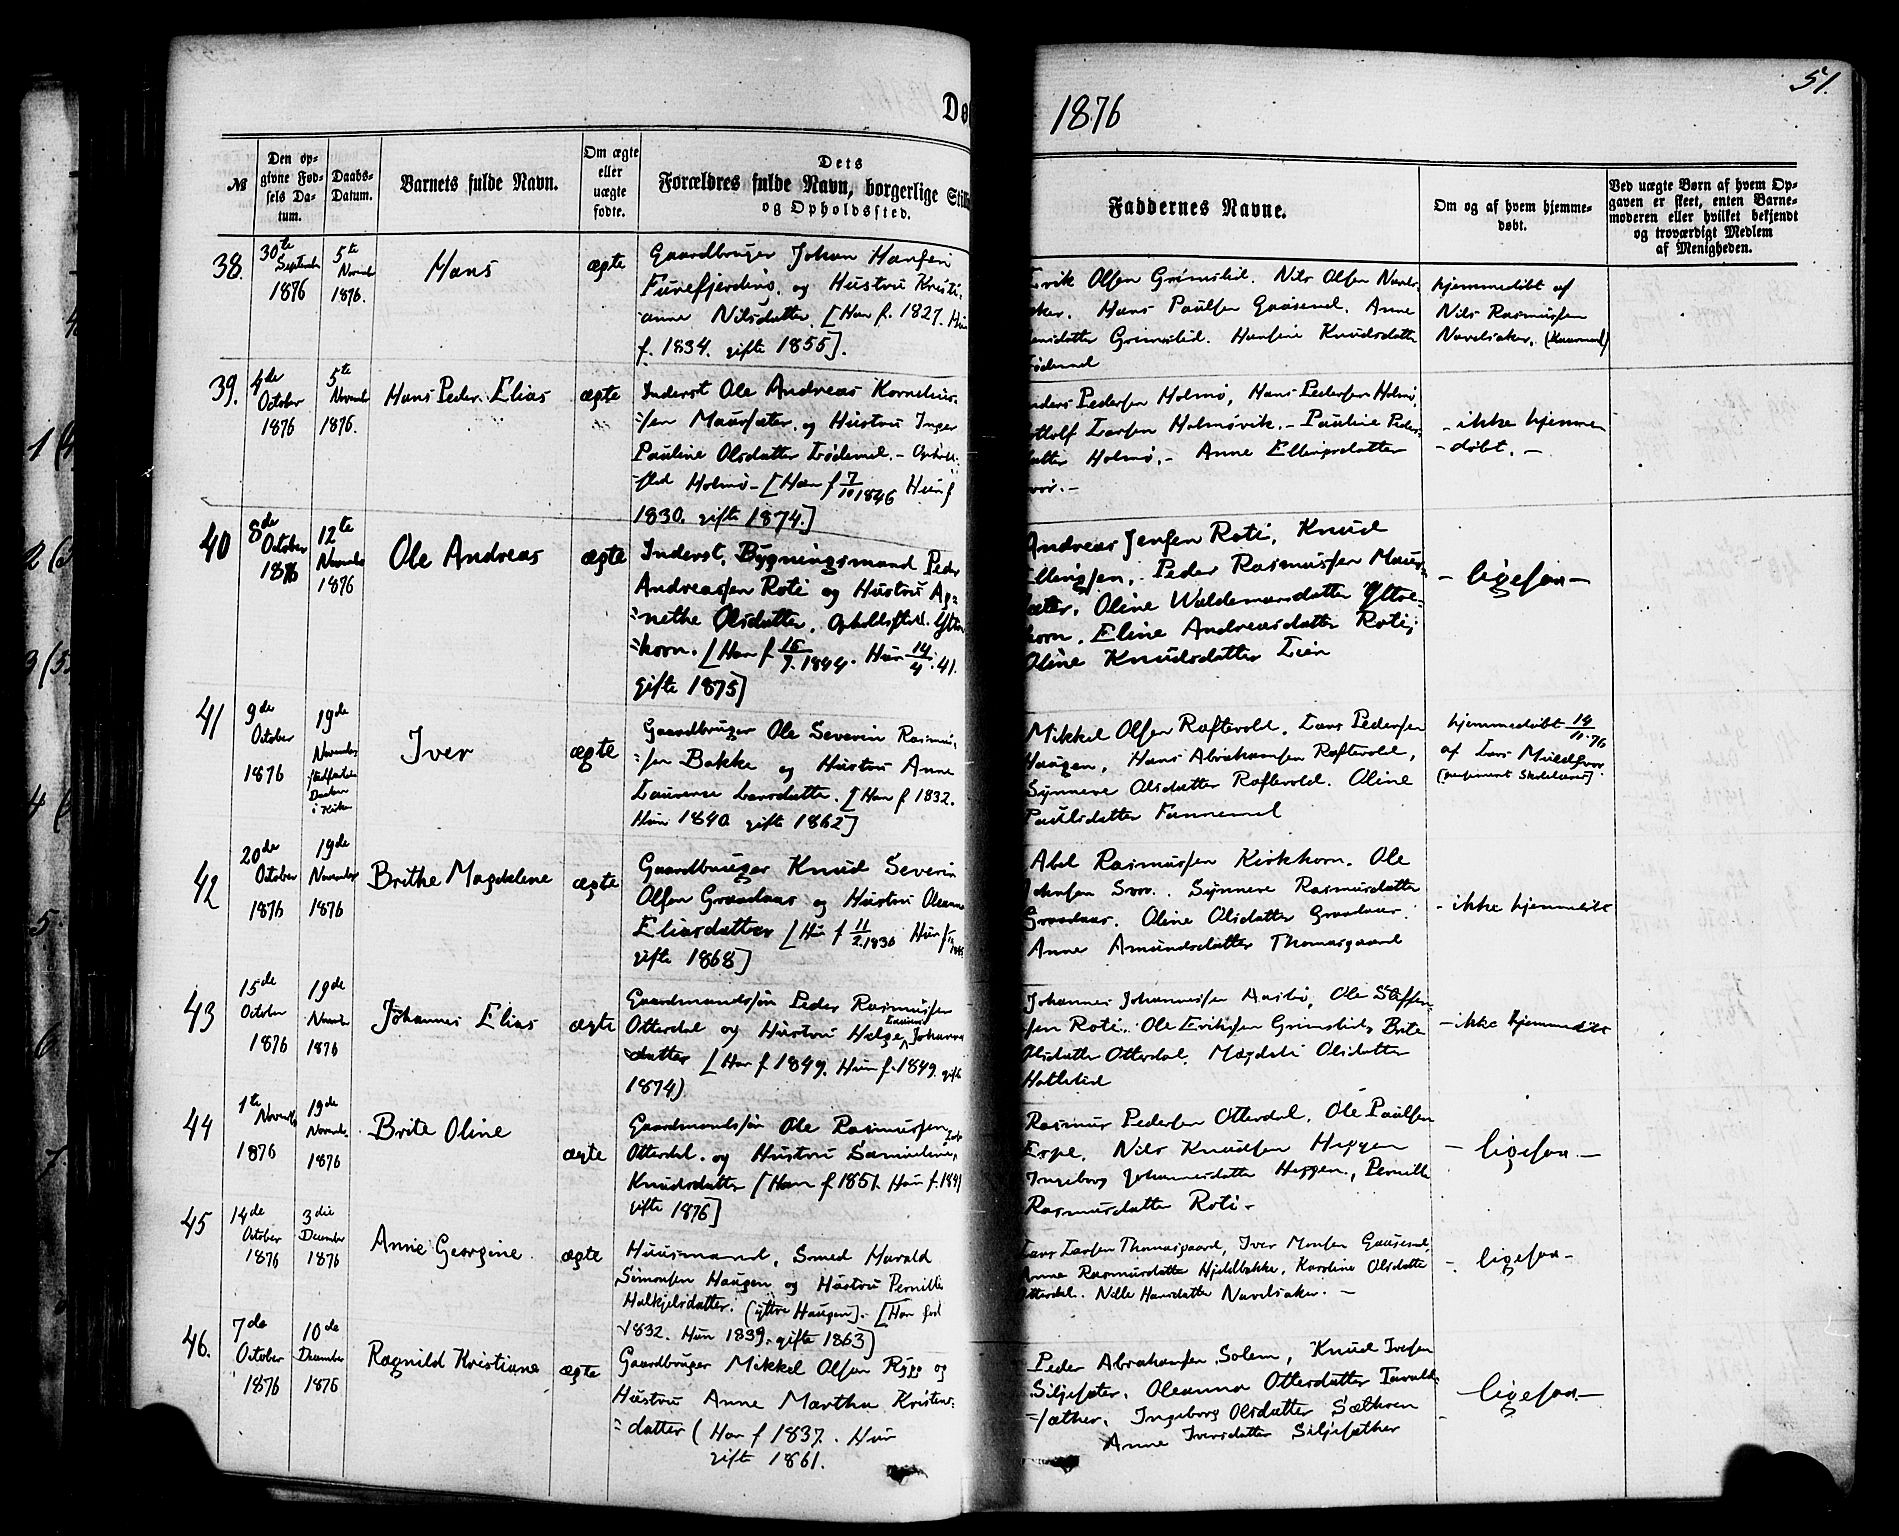 51.
Dø
1876
№
Den op-
givne Fød-
sels Da-
tum.
Daabs-
Datum.
Barnets fulde Navn.
Om ægte
eller
uægte
fødte.
Dets
Forældres fulde Navn, borgerlige Stil
og Opholdssted.
Faddernes Navne.
Om og af hvem hjemme-
døbt.
Ved uægte Børn af hvem Op-
gaven er skeet, enten Barne-
moderen eller hvilket bekjendt
og troværdigt Medlem
af Menigheden.
38.
30te
Septembr
1876
5te
Novembr
1876.
Hans
ægte
Gaardbruger Johan Hansen
Furefjerding, og Hustru Kristi-
anne Nilsdatter. [Han f. 1827. Hun
f. 1834. gifte 1855].
Erik Olsen Grimstid. Nils Olsen Navel-
saker. Hans Paulsen Gaasemel. Anne
Grimstid. Hansine Knudsdatter
Lødemel
hjemmedøbt af
Nils Rasmussen
Navelsaker.
39.
4de
October
1876
5te
Novembr
1876.
Hans Peder Elias
ægte
Inderst Ole Andreas Kornelius-
sen Maursæter, og Hustru Inger
Pauline Olsdatter Lødemel. - Ophold-
sted Holmø - [Han f 7/10 1846 Hun f
1830. gifte 1874.]
Anders Pedersen Holmø, Hans Pedersen Holmø,
Larsen Holmøvik. - Pauline Peders-
datter Holmø. - Anne Ellingsdatter
Svor. -
- ikke hjemme
- døbt. -
40
8de
October
1876
12te
Novembr
1876
Ole Andreas
ægte
Inderst, Bygningsmand Peder
Andreassen Roti og Hustru Ag-
nethe Olsdatter. Opholdssted. Ytre
horn. [Han f 15/7. 1844. Hun 14/4. 41.
gifte 1875]
Andreas Jensen Roti, Knud
Ellingsen, - Peder Rasmussen Maur-
sæter. Oline Waldemarsdatter Yttre-
horn. Eline Andreasdatter Roti,
Oline Knudsdatter Lien
- ligesaa -
41
9de
October
1876
19de
November
stadfæstes
Daaben
i Kirken
Iver
ægte
Gaardbruger Ole Severin Rasmus-
sen Bakke og Hustru Anne
Laurense Larsdatter. [Han f 1832.
Hun 1840. gifte 1862]
Mikkel Olsen Raftevold. Lars Pedersen
Haugen, Hans Abrahamsen Raftevold,
Synneve Olsdatter Raftevold. Oline
Paulsdatter Fannemel
hjemmedøbt 14/11. 76
af Lars
42
20de
October
1876
19de
November
1876
Brithe Magdelene
ægte
Gaardbruger Knud Severin
Olsen Graadaas og Hustru Oleanne
Eliasdatter [Han f 11/2. 1830 Hun f
gifte 1868]
Abel Rasmussen Kirkhorn. Ole
Johnsen Svor. Synneve Rasmusdatter
Graadaas. Oline Olsdatter Graadaas.
Anne Amundsdatter Thomasgaard
- ikke hjemmedøbt
43
15de
October
1876
19de
Novembr
1876
Johannes Elias
ægte
Gaardmandssøn Peder Rasmussen
Otterdal og Hustru Helge Johannes
datter [Han f 1849. Hun f. 1849. gifte
1874)
Johannes Johannessen Aasebø, Ole Steffen-
sen Roti. Ole Eriksen Grimstid, Brite
Olsdatter Otterdal. Magdeli Olsdatter
Holleslid
- ikke hjemmedøbt
44
1te
Novembr
1876
19de
Novemb.
1876
Brite Oline
ægte
Gaardmandssøn Ole Rasmussen
Otterdal. og Hustru Samueline
Knudsdatter [Han f. 1851. Hun f. 184
gifte 1876]
Rasmus Pedersen Otterdal. Ole Paulsen
Espe. Nils Knudsen Heggen
Ingeborg Johannesdatter Heggen., Pernille
Rasmusdatter Roti. -
- ligesaa -
45
14de
October
1876
3die
December
1876
Anne Georgine
ægte
Huusmand, Smed Harald
Simonsen Haugen og Hustru Pernille
Halkjelsdatter. (ytre Haugen). [Han født
1832. Hun 1839. gifte 1863]
Lars Larsen Thomasgaard, Iver Monsen Gaasemel,
Anne Rasmusdatter Hjeldbakke, Karoline Olsdatter
Otterdal. Nille Hansdatter Navelsaker. -
- ligesaa -
46.
7de
October
1876
10de
December
1876
Ragnild Kristiane
ægte
Gaardbruger Mikkel Olsen Rygg og
Hustru Anne Martha Kristens-
datter (Han f 1837. Hun
gifte 1861.
Peder Abrahamsen Solem, Knud Iversen
Siljesæter. Oleanna Ottersdatter Tavald-
sæther. Ingeborg Olsdatter Sæthren
Anne Iversdatter Siljesæther
- ligesaa -